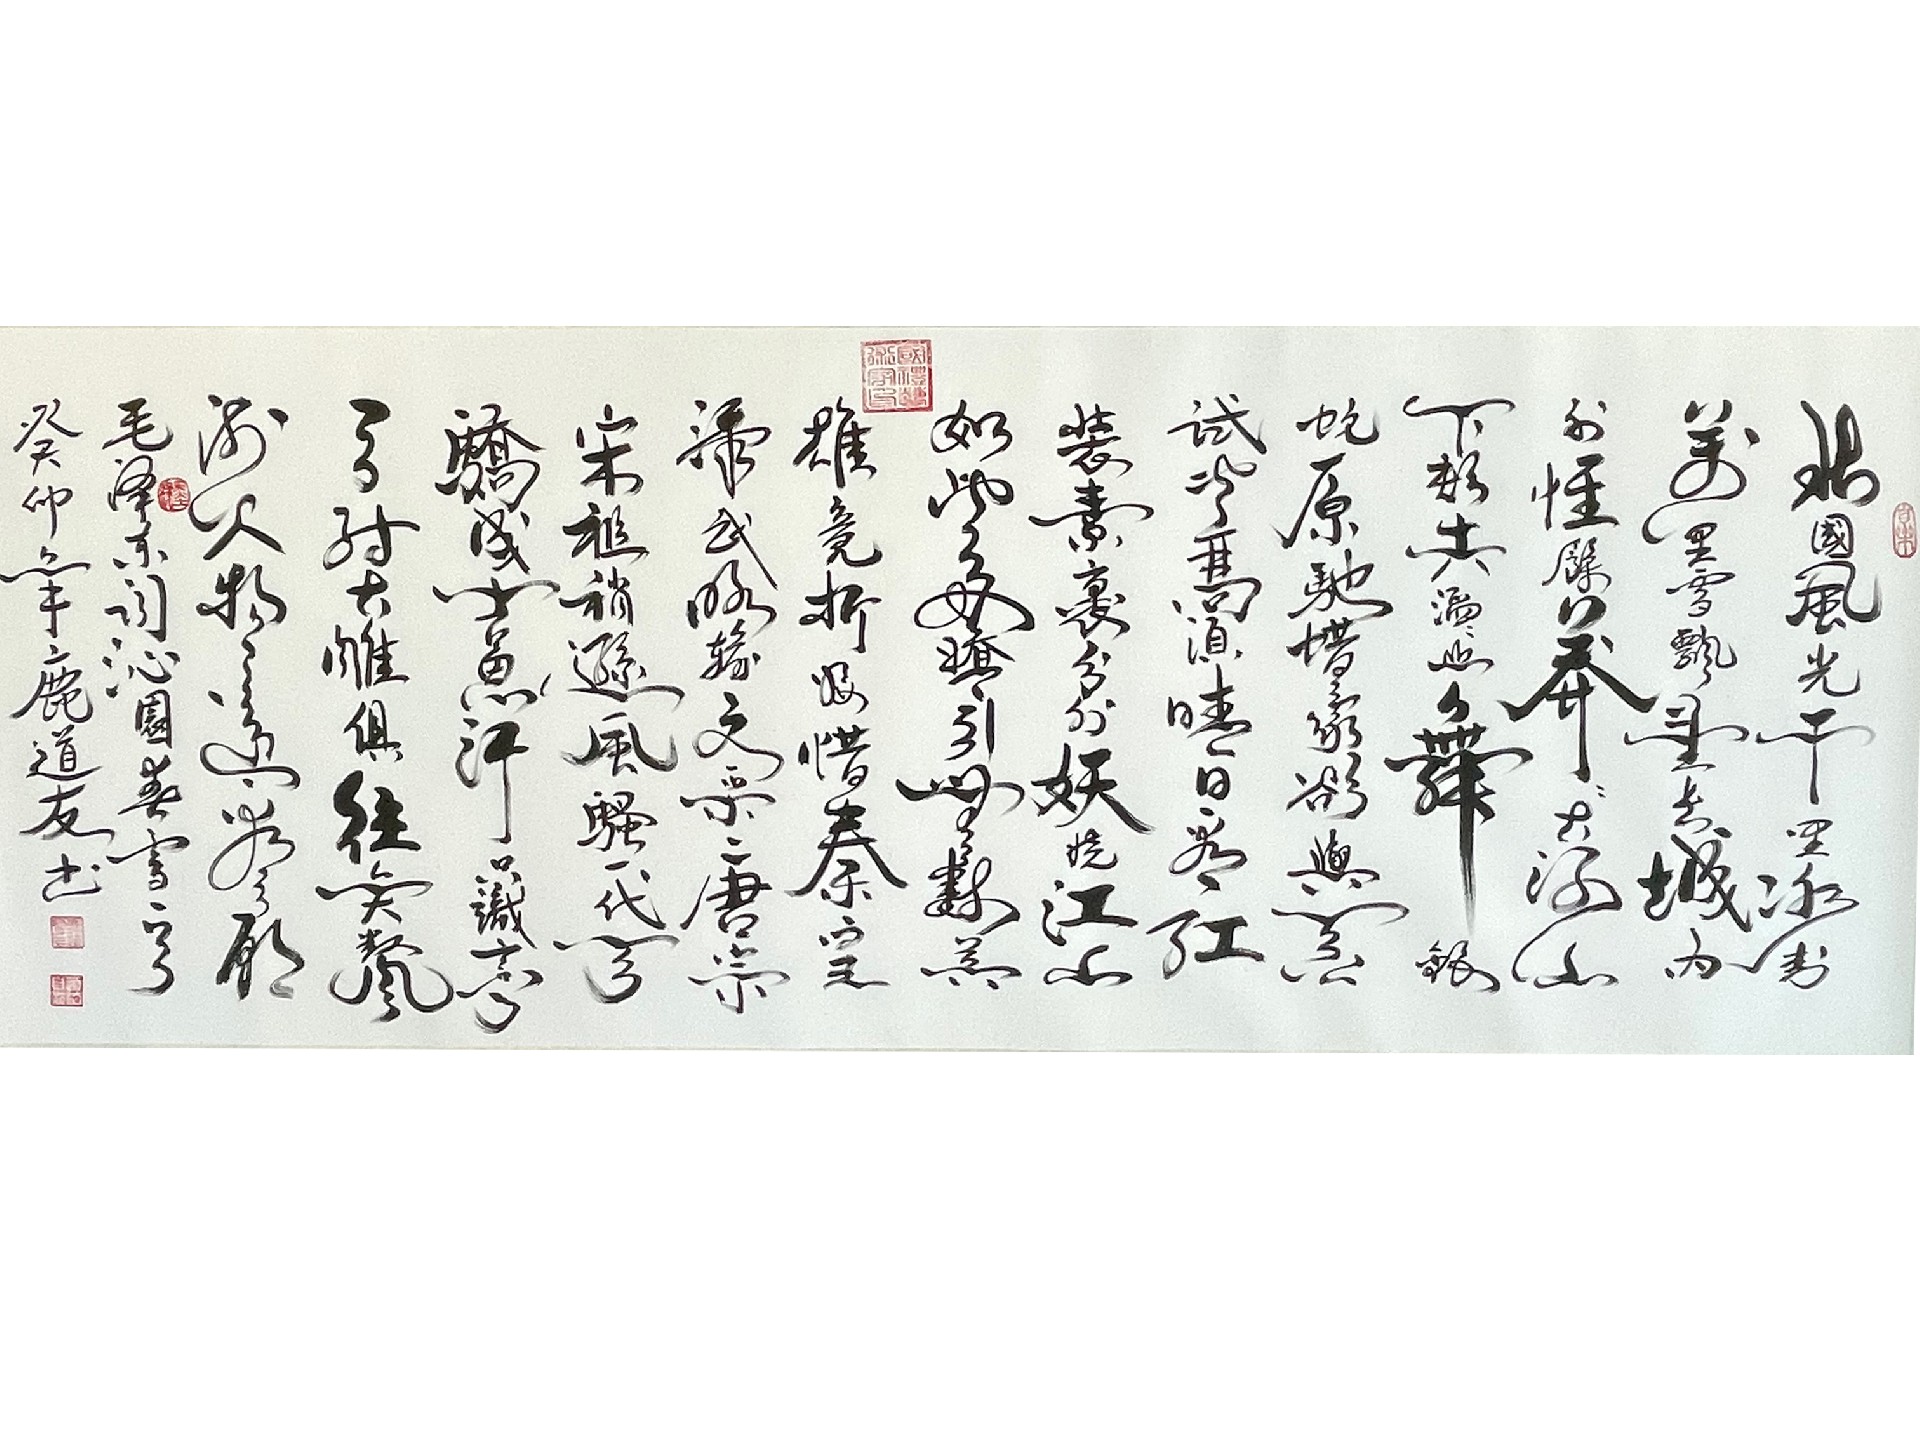 北國風光千里冰封
萬里雪飄望長城内
外惟餘莽莽大河上
下頓失滔滔山舞銀
蛇原馳蜡象欲與天公
試比高須晴日看紅
装素裹分外妖娆江山
如此多嬌引無數英
雄竞折腰惜秦皇
漢武略輸文采唐宗
宋祖稍遜風騷一代天
驕成吉思汗只識彎
弓射大雕俱往矣數風
流人物還看今朝
毛泽东词沁園春雪一首
癸卯年鹿道友书